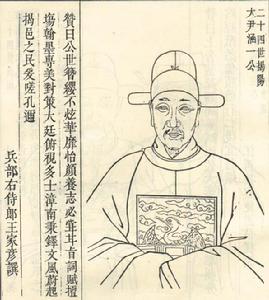 二十四世揭陽
大尹涵一公
贊曰公世簪纓不炫華靡怡顏養志必
耳音詞賦擅
塲翰墨專美對策大廷俯視多士漳南秉鐸文風蔚起
揭邑之民爱嗟孔邇
兵部右侍郎王家彦譔